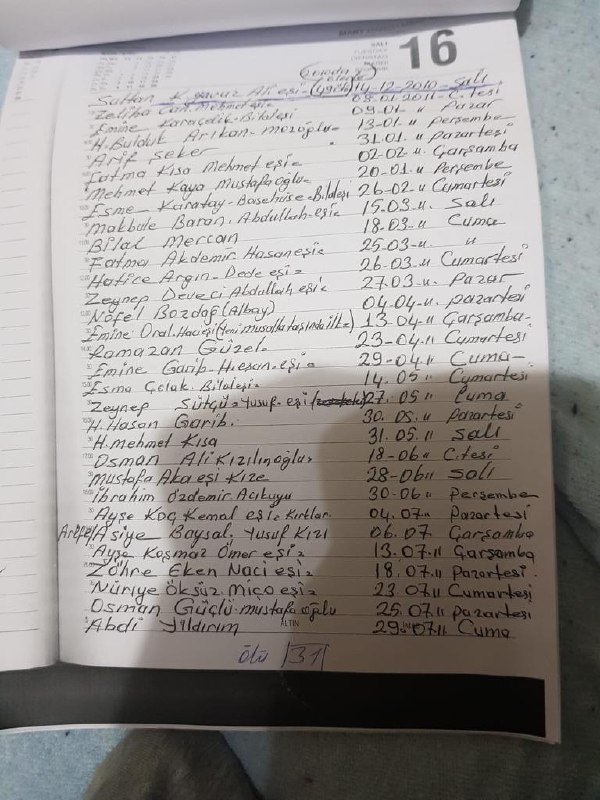 MART
SALI
TUESDAY
DIENSTAG
MARDI
16
Sultan Kyavuz Ali eşi (49da) 14.12.2010 - Salı
Zeliha Can Mehmet eşi = 08.01.2011 - C.tesi
Emine Karaçelik - Bilal eşi 09-01 " Pazar
H. Bulduk Arıkan - mozoğlu = 13-01 " perşembe
Arif Şeker 31.01. " pazartesi
Fatma Kısa Mehmet eşi = 02-02 " Çarşamba
Mehmet Kaya Mustafaoğlu = 20.01 " Perşembe
Esme Karatay - Bilal eşi 26-02 " Cumartesi
Makbule Baran. Abdullah-eşi = 15.03 " Salı
Bilal Mercan 18.03 " Cuma
Fatma Akdemir Hasan eşi = 25.03 - " "
Hatice Argın - Dede eşi = 26-03 - " Cumartesi
Zeynep Deveci Abdullah eşi = 27.03 - " Pazar
Nofel Bozdağ (Albay) 04.04 - ". pazartesi
Emine Oral. Hacı eşi (Yeni musalla taşında ilk) 13-04 - " Çarşamba -
Ramazan Güzel = 23-04 - " Cumartesi
Emine Garib - Hasan - eşi = 29-04 " Cuma -
Esma Çolak - Bilal eşi = 14.05 " Cumartesi
Zeynep Sütçü = Yusuf - eşi 27.05 " Cuma
H. Hasan Garib. 30.05. " pazartesi
H. Mehmet Kısa 31.05. " Salı
Osman Ali Kızılınoğlu = 18-06 " C.tesi
Mustafa Aka eşi Kıze = 28-06 " Salı
İbrahim Özdemir Acıkuyu 30-06 " Perşembe
Ayşe Koç Kemal eşi = Kırtlar. 04.07 " Pazartesi
Arefe/ Asiye Baysal. Yusuf Kızı 06.07 Çarşamba
Ayşe Koşmaz Ömer eşi = 13.07. " Çarşamba
Zöhre Eken Naci eşi = 18.07 " pazartesi
Nuriye Öksüz. Miço eşi = 23.07 " Cumartesi
Osman Güçlü - mustafa oğlu 25.07 " pazartesi
Abdi Yıldırım 29.07 " Cuma
ALTIN
Ölü /31/